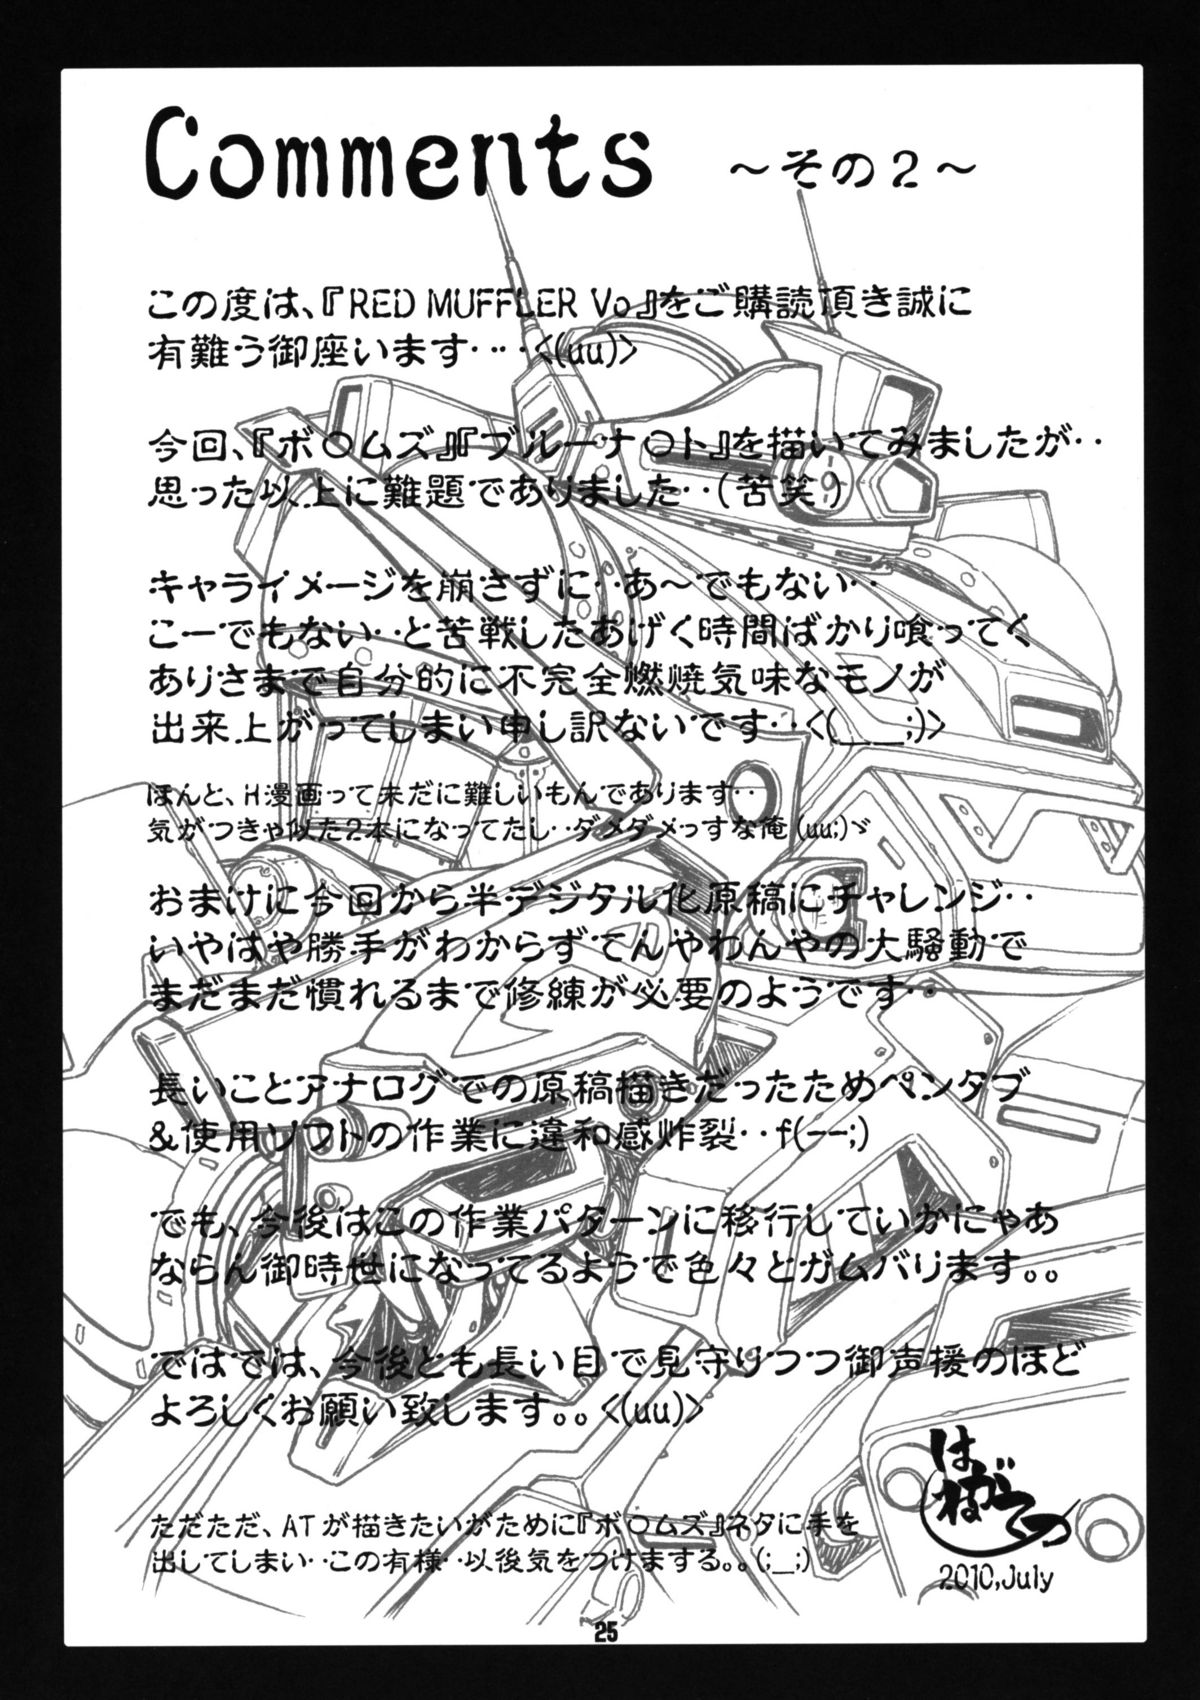 Comments ～その2～
この度は、『RED MUFFLER Vo』をご購読頂き誠に
有難う御座います‥‥<(uu)>
今回、『ボ〇ムズ』『ブルーナ〇ト』を描いてみましたが‥
思った以上に難題でありました‥(苦笑)
キャライメージを崩さずに‥あ～でもない‥
こーでもない‥と苦戦したあげく時間ばかり喰ってく
ありさまで自分的に不完全燃焼気味なモノが
出来上がってしまい申し訳ないです‥<(__;)>
ほんと、H漫画って未だに難しいもんであります‥
気がつきゃ似た2本になってたし‥ダメダメっすな俺(uu;)ゞ
おまけに今回から半デジタル化原稿にチャレンジ‥
いやはや勝手がわからずてんやわんやの大騒動で
まだまだ慣れるまで修練が必要のようです‥
長いことアナログでの原稿描きだったためペンタブ
&使用ソフトの作業に違和感炸裂‥f(--;)
でも、今後はこの作業パターンに移行していかにゃあ
ならん御時世になってるようで色々とガムバります。。
ではでは、今後とも長い目で見守りつつ御声援のほど
よろしくお願い致します。。<(uu)>
はねがてつ
2010,July
ただただ、ATが描きたいがために『ボ〇ムズ』ネタに手を
出してしまい‥この有様‥以後気をつけまする。。(;_;)
25